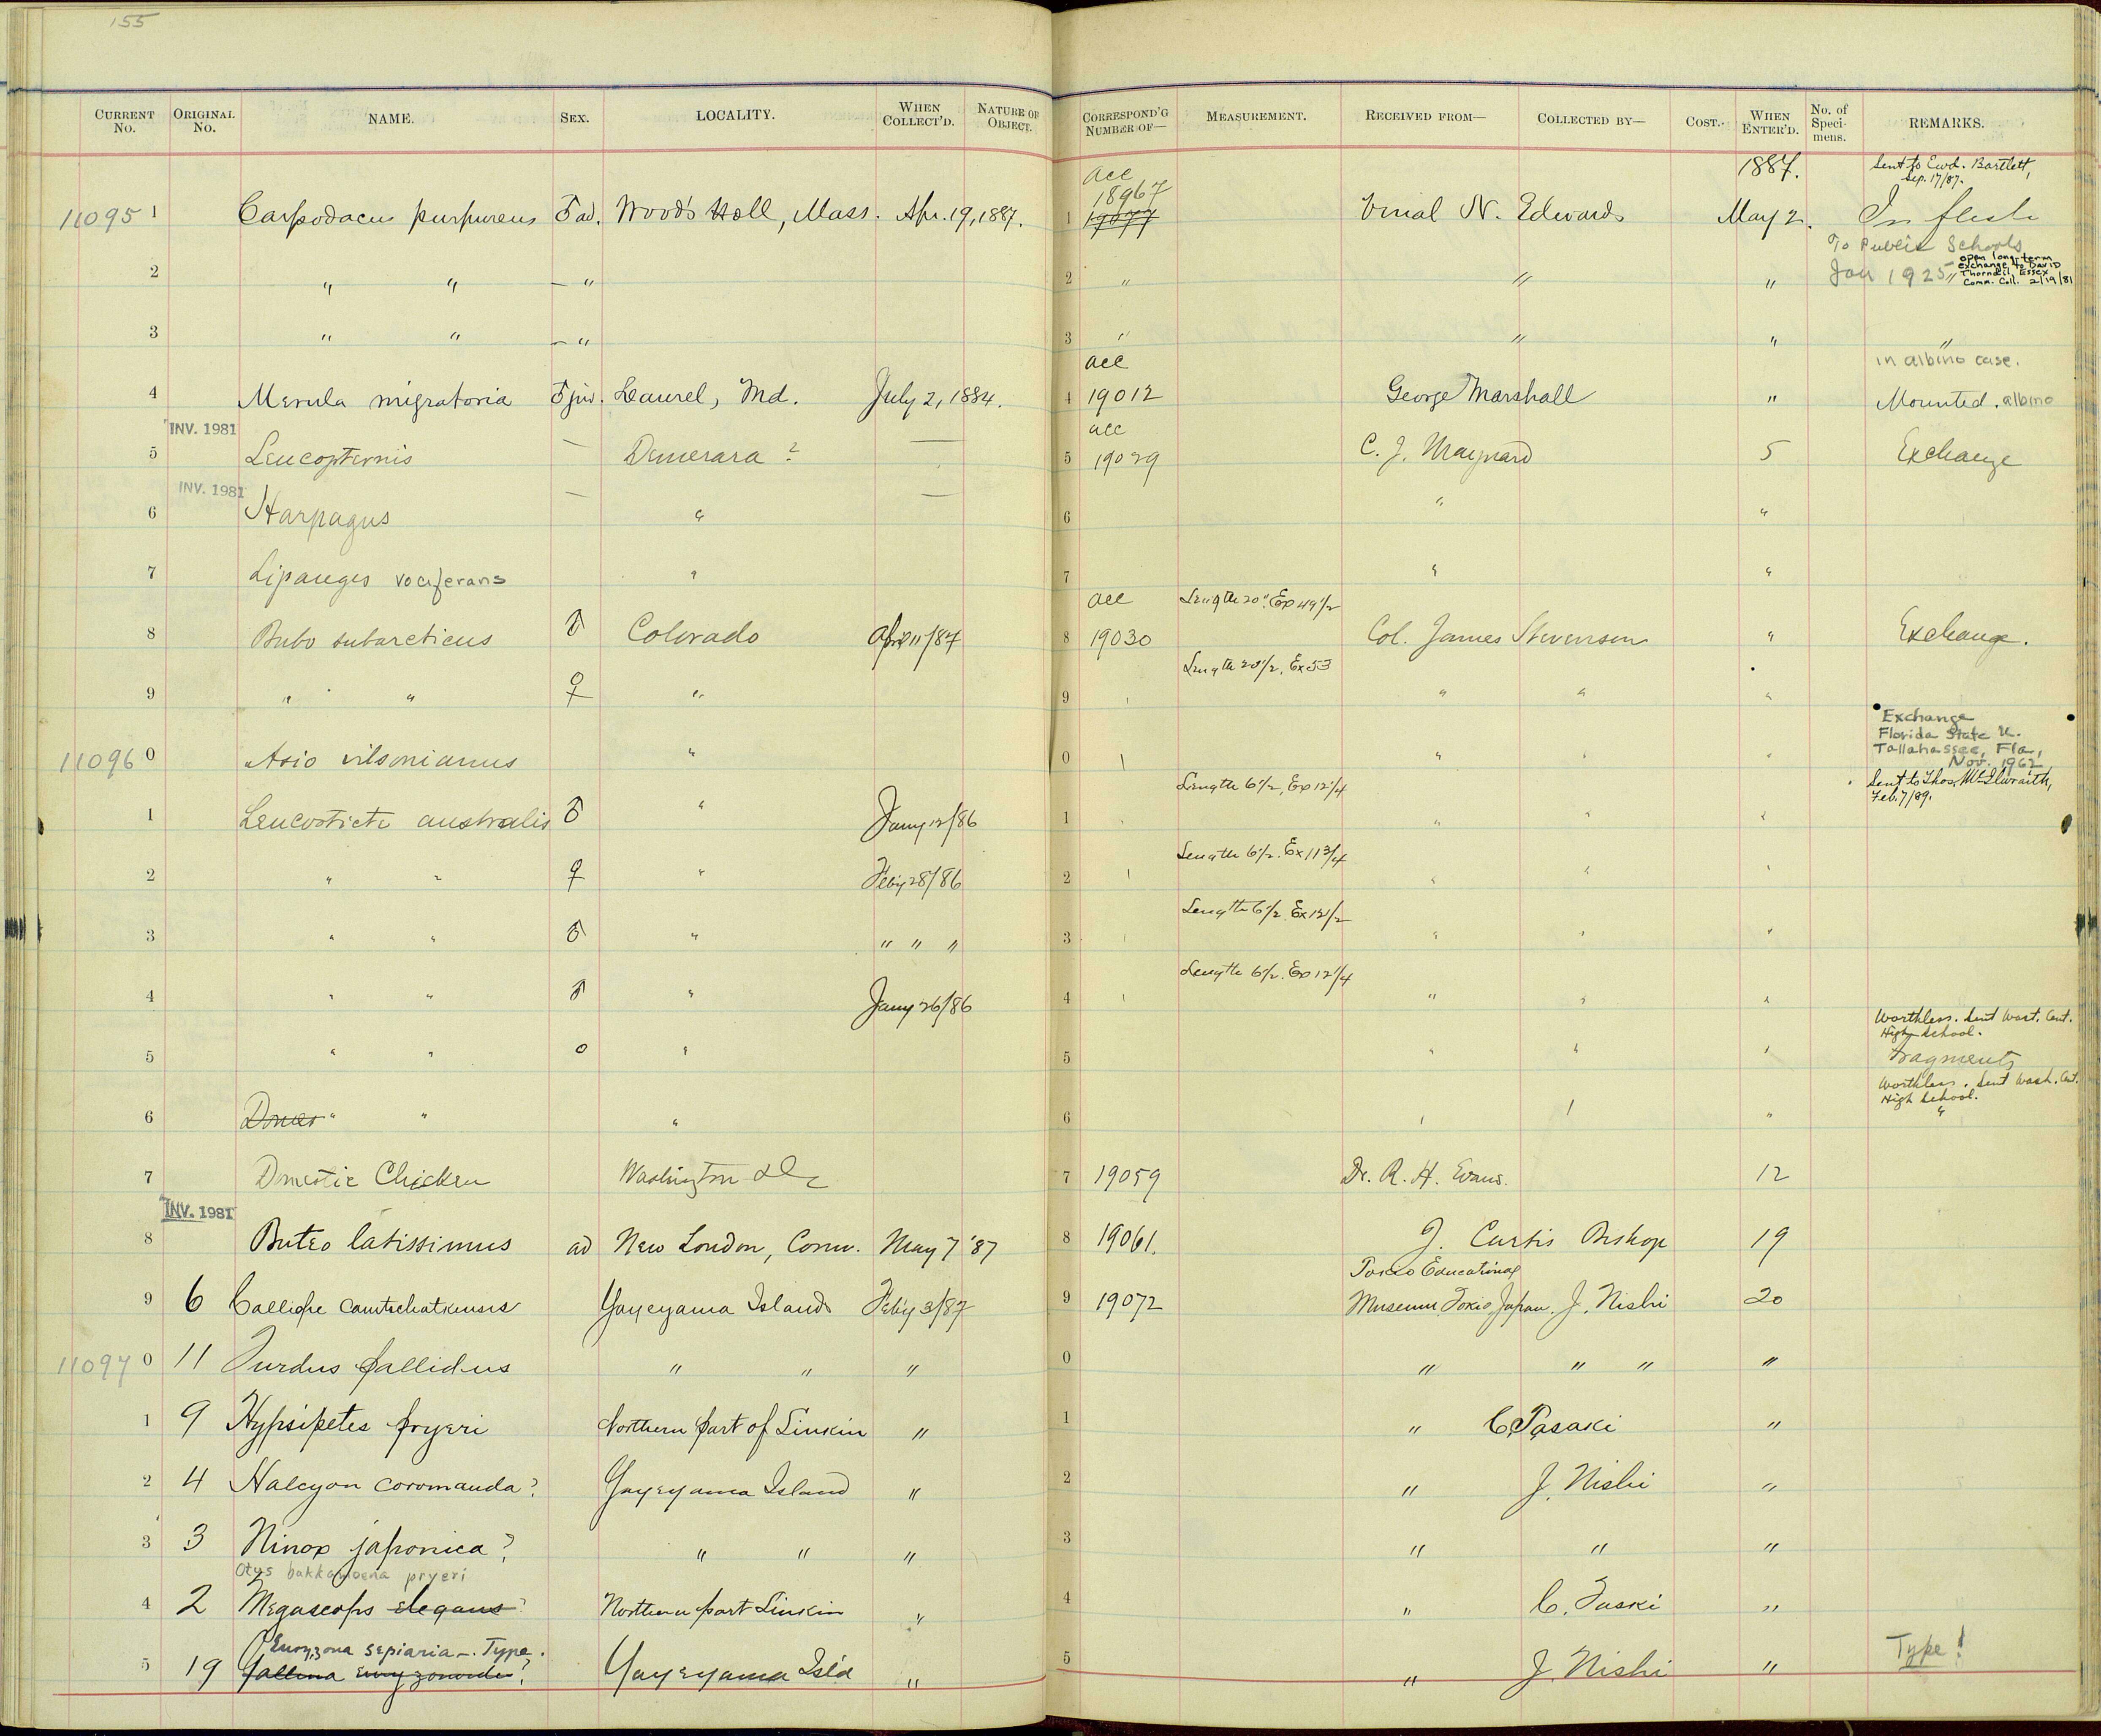 155
CURRENT No. ORIGINAL No. NAME. SEX. LOCALITY. WHEN COLLECT'D. NATURE OF OBJECT. CORRESPOND'G NUMBER OF— MEASUREMENT. RECEIVED FROM— COLLECTED BY— COST. WHEN ENTER'D. No. of Specimens. REMARKS.
acc 1887. Sent to Ewd. Bartlett, Sep. 17/87.
18967
11095 1 Carpodacus purpureus ♂ ad. Wood's Holl, Mass. Apr. 19, 1887. 1 19077 Vinal N. Edwards May 2. In flesh
To Public Schools
2 " " — " 2 " " " Jan 1925 " open long-term exchange to David Thorndill Essex Comm. Coll. 2/19/81
3 " " — " 3 " " " "
acc in albino case.
4 Merula migratoria ♂ juv. Laurel, Md. July 2, 1884. 4 19012 George Marshall " Mounted. albino
INV. 1981 acc
5 Leucopternis — Demerara? — 5 19029 C. J. Maynard 5 Exchange
INV. 1981
6 Harpagus — " — 6 " "
7 Lipaugus vociferans " 7 " "
acc Length 20". Ex 49 1/2
8 Bubo subarcticus ♂ Colorado Apr 11/87 8 19030 Col. James Stevenson " Exchange.
Length 20 1/2, Ex 53
9 " " ♀ " 9 " " " "
Exchange Florida State U. Tallahassee, Fla, Nov. 1962
11096 0 Asio wilsonianus " 0 " " " "
Length 6 1/2, Ex 12 1/4 Sent to Thos. McIlwraith, Feb. 7/89.
1 Leucosticte australis ♂ " Jany 12/86 1 " " " "
Length 6 1/2. Ex 11 3/4
2 " " ♀ " Feby 28/86 2 " " " "
Length 6 1/2 Ex 12 1/2
3 " " ♂ " " " " 3 " " " "
Length 6 1/2. Ex 12 1/4
4 " " ♂ " Jany 26/86 4 " " " "
Worthless. Sent Wash. Cent. High School.
5 " " o " 5 " " " Fragments
Worthless. Sent Wash. Cent. High School.
6 Domes " " " 6 " " " "
7 Domestic Chicken Washington D C 7 19059 Dr. R. H. Evans. 12
INV. 1981
8 Buteo latissimus ad New London, Conn. May 7 '87 8 19061. J. Curtis Bishop 19
Tokio Educational
9 6 Calliope camtschatkensis Yayeyama Islands Feby 3/87 9 19072 Museum Tokio, Japan. J. Nishi 20
11097 0 11 Turdus pallidus " " " 0 " " " "
1 9 Hypsipetes pryeri Northern part of Liukiu " 1 " C. Tasaki "
2 4 Halcyon coromanda? Yayeyama Island " 2 " J. Nishi "
3 3 Ninox japonica? " " " 3 " " "
Otus bakkamoena pryeri
4 2 Megascops elegans? Northern part Liukiu " 4 " C. Taski "
Euryzona sepiaria —. Type.
5 19 Rallina euryzonoides? Yayeyama Isl'd " 5 " J. Nishi " Type!